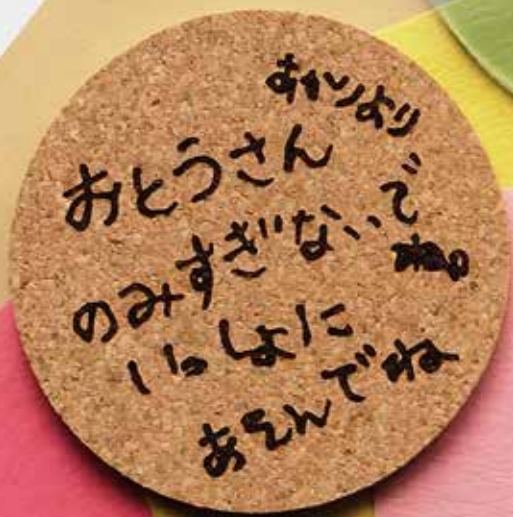 あかりより
おとうさん
のみすぎないで
ね。
いっしょに
あそんでね